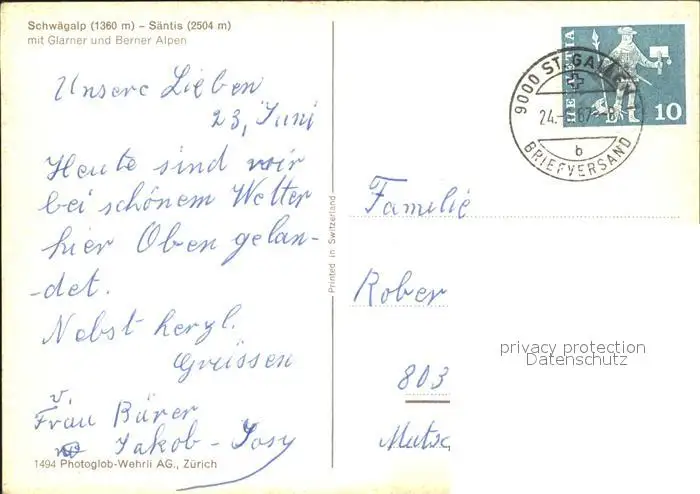 Schwägalp (1360 m) – Säntis (2504 m)
mit Glarner und Berner Alpen
Unsere Lieben
23, Juni
Heute sind wir
bei schönem Wetter
hier Oben gelan-
-det.
Nebst herzl.
Grüssen
v.
Frau Bürer
Jakob - Josy
1494 Photoglob-Wehrli AG., Zürich
Printed in Switzerland
HELVETIA
10
9000 ST. GALLEN
24.-
67-8
b
BRIEFVERSAND
Familie
Rober
803
Mutsc
privacy protection
Datenschutz